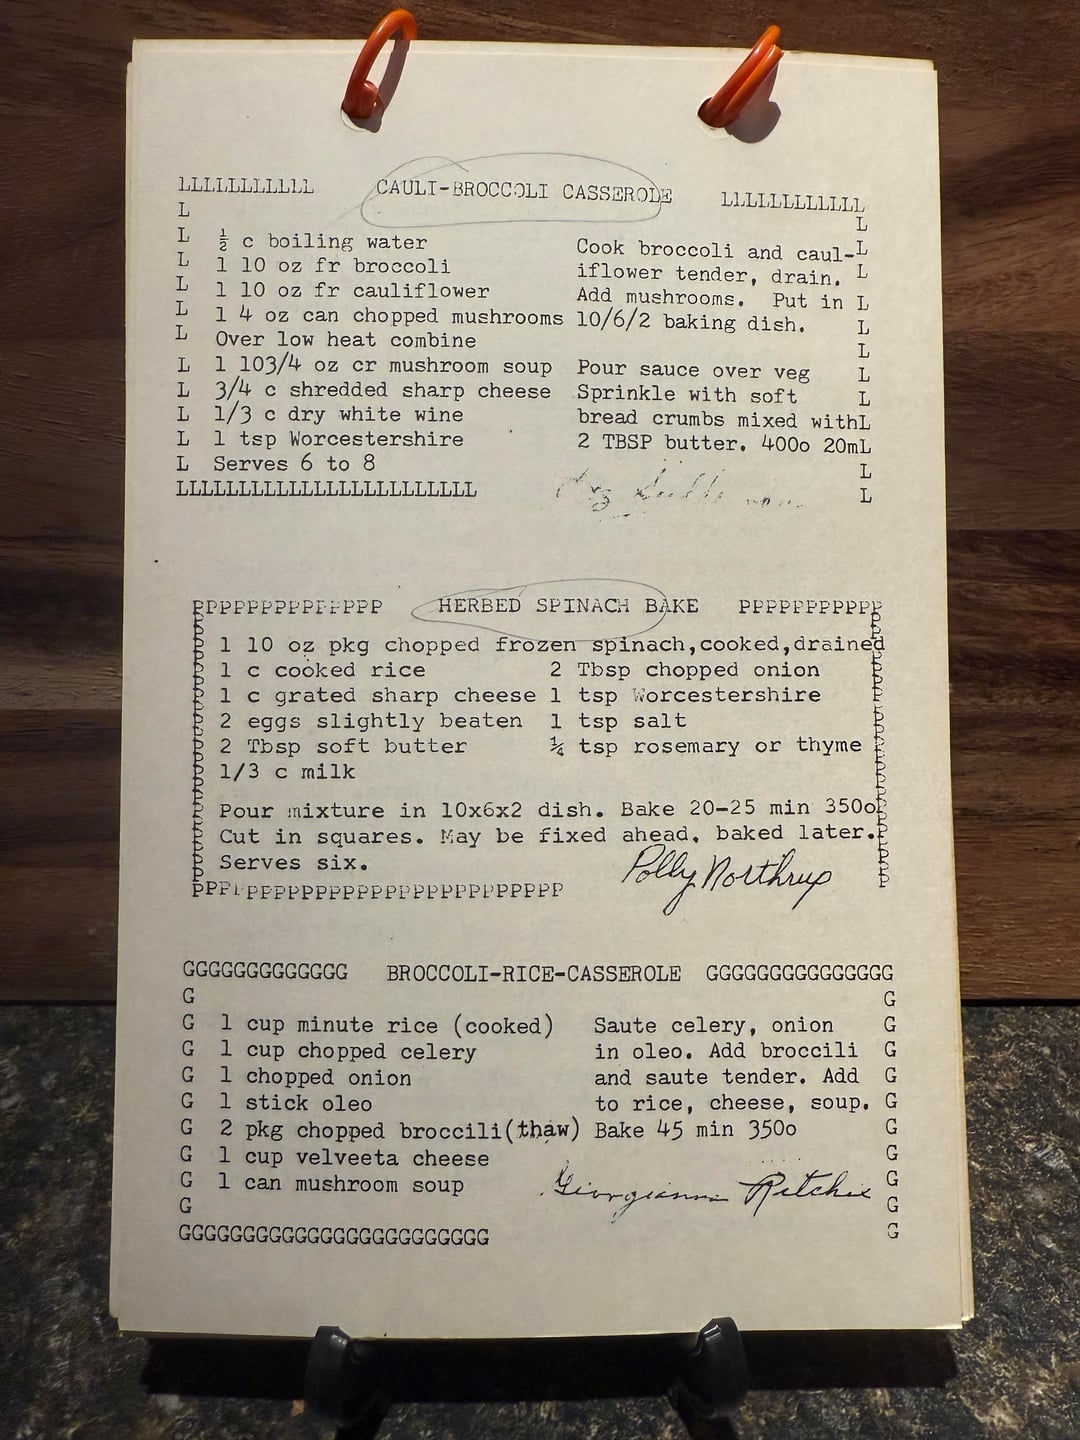 LLLLLLLLLLL CAULI-BROCCOLI CASSEROLE LLLLLLLLLLLL
½ c boiling water
1 10 oz fr broccoli
1 10 oz fr cauliflower
1 4 oz can chopped mushrooms
Over low heat combine
1 103/4 oz cr mushroom soup
3/4 c shredded sharp cheese
1/3 c dry white wine
1 tsp Worcestershire
Serves 6 to 8
Cook broccoli and caul-
iflower tender, drain.
Add mushrooms. Put in
10/6/2 baking dish.
Pour sauce over veg
Sprinkle with soft
bread crumbs mixed with
2 TBSP butter. 400o 20m
LLLLLLLLLLLLLLLLLLLLLLLL
PPPPPPPPPPPPPP HERBED SPINACH BAKE PPPPPPPPPPP
1 10 oz pkg chopped frozen spinach,cooked,drained
1 c cooked rice 2 Tbsp chopped onion
1 c grated sharp cheese 1 tsp Worcestershire
2 eggs slightly beaten 1 tsp salt
2 Tbsp soft butter ¼ tsp rosemary or thyme
1/3 c milk
Pour mixture in 10x6x2 dish. Bake 20-25 min 350o
Cut in squares. May be fixed ahead, baked later.
Serves six.
Polly Northrup
PPPPPPPPPPPPPPPPPPPPPPPPPPP
GGGGGGGGGGGGG BROCCOLI-RICE-CASSEROLE GGGGGGGGGGGGGGG
1 cup minute rice (cooked)
1 cup chopped celery
1 chopped onion
1 stick oleo
2 pkg chopped broccili(thaw)
1 cup velveeta cheese
1 can mushroom soup
Saute celery, onion
in oleo. Add broccili
and saute tender. Add
to rice, cheese, soup.
Bake 45 min 350o
Georgianna Ritchie
GGGGGGGGGGGGGGGGGGGGGGGG